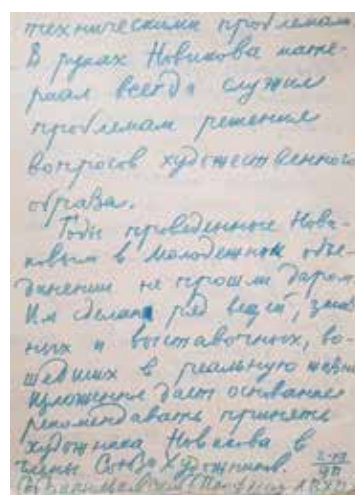 техническими проблемам
В руках Новикова мате-
риал всегда служил
проблемам решения
вопросов художественного
образа.
Годы проведенные Нови-
ковым в молодежном объе-
динении не прошли даром
Им сделан ряд вещей,
и выставочных, во-
шедших в реальную жизнь
изложенное дает основание
рекомендовать принять
художника Новикова в
члены Союза Художников.